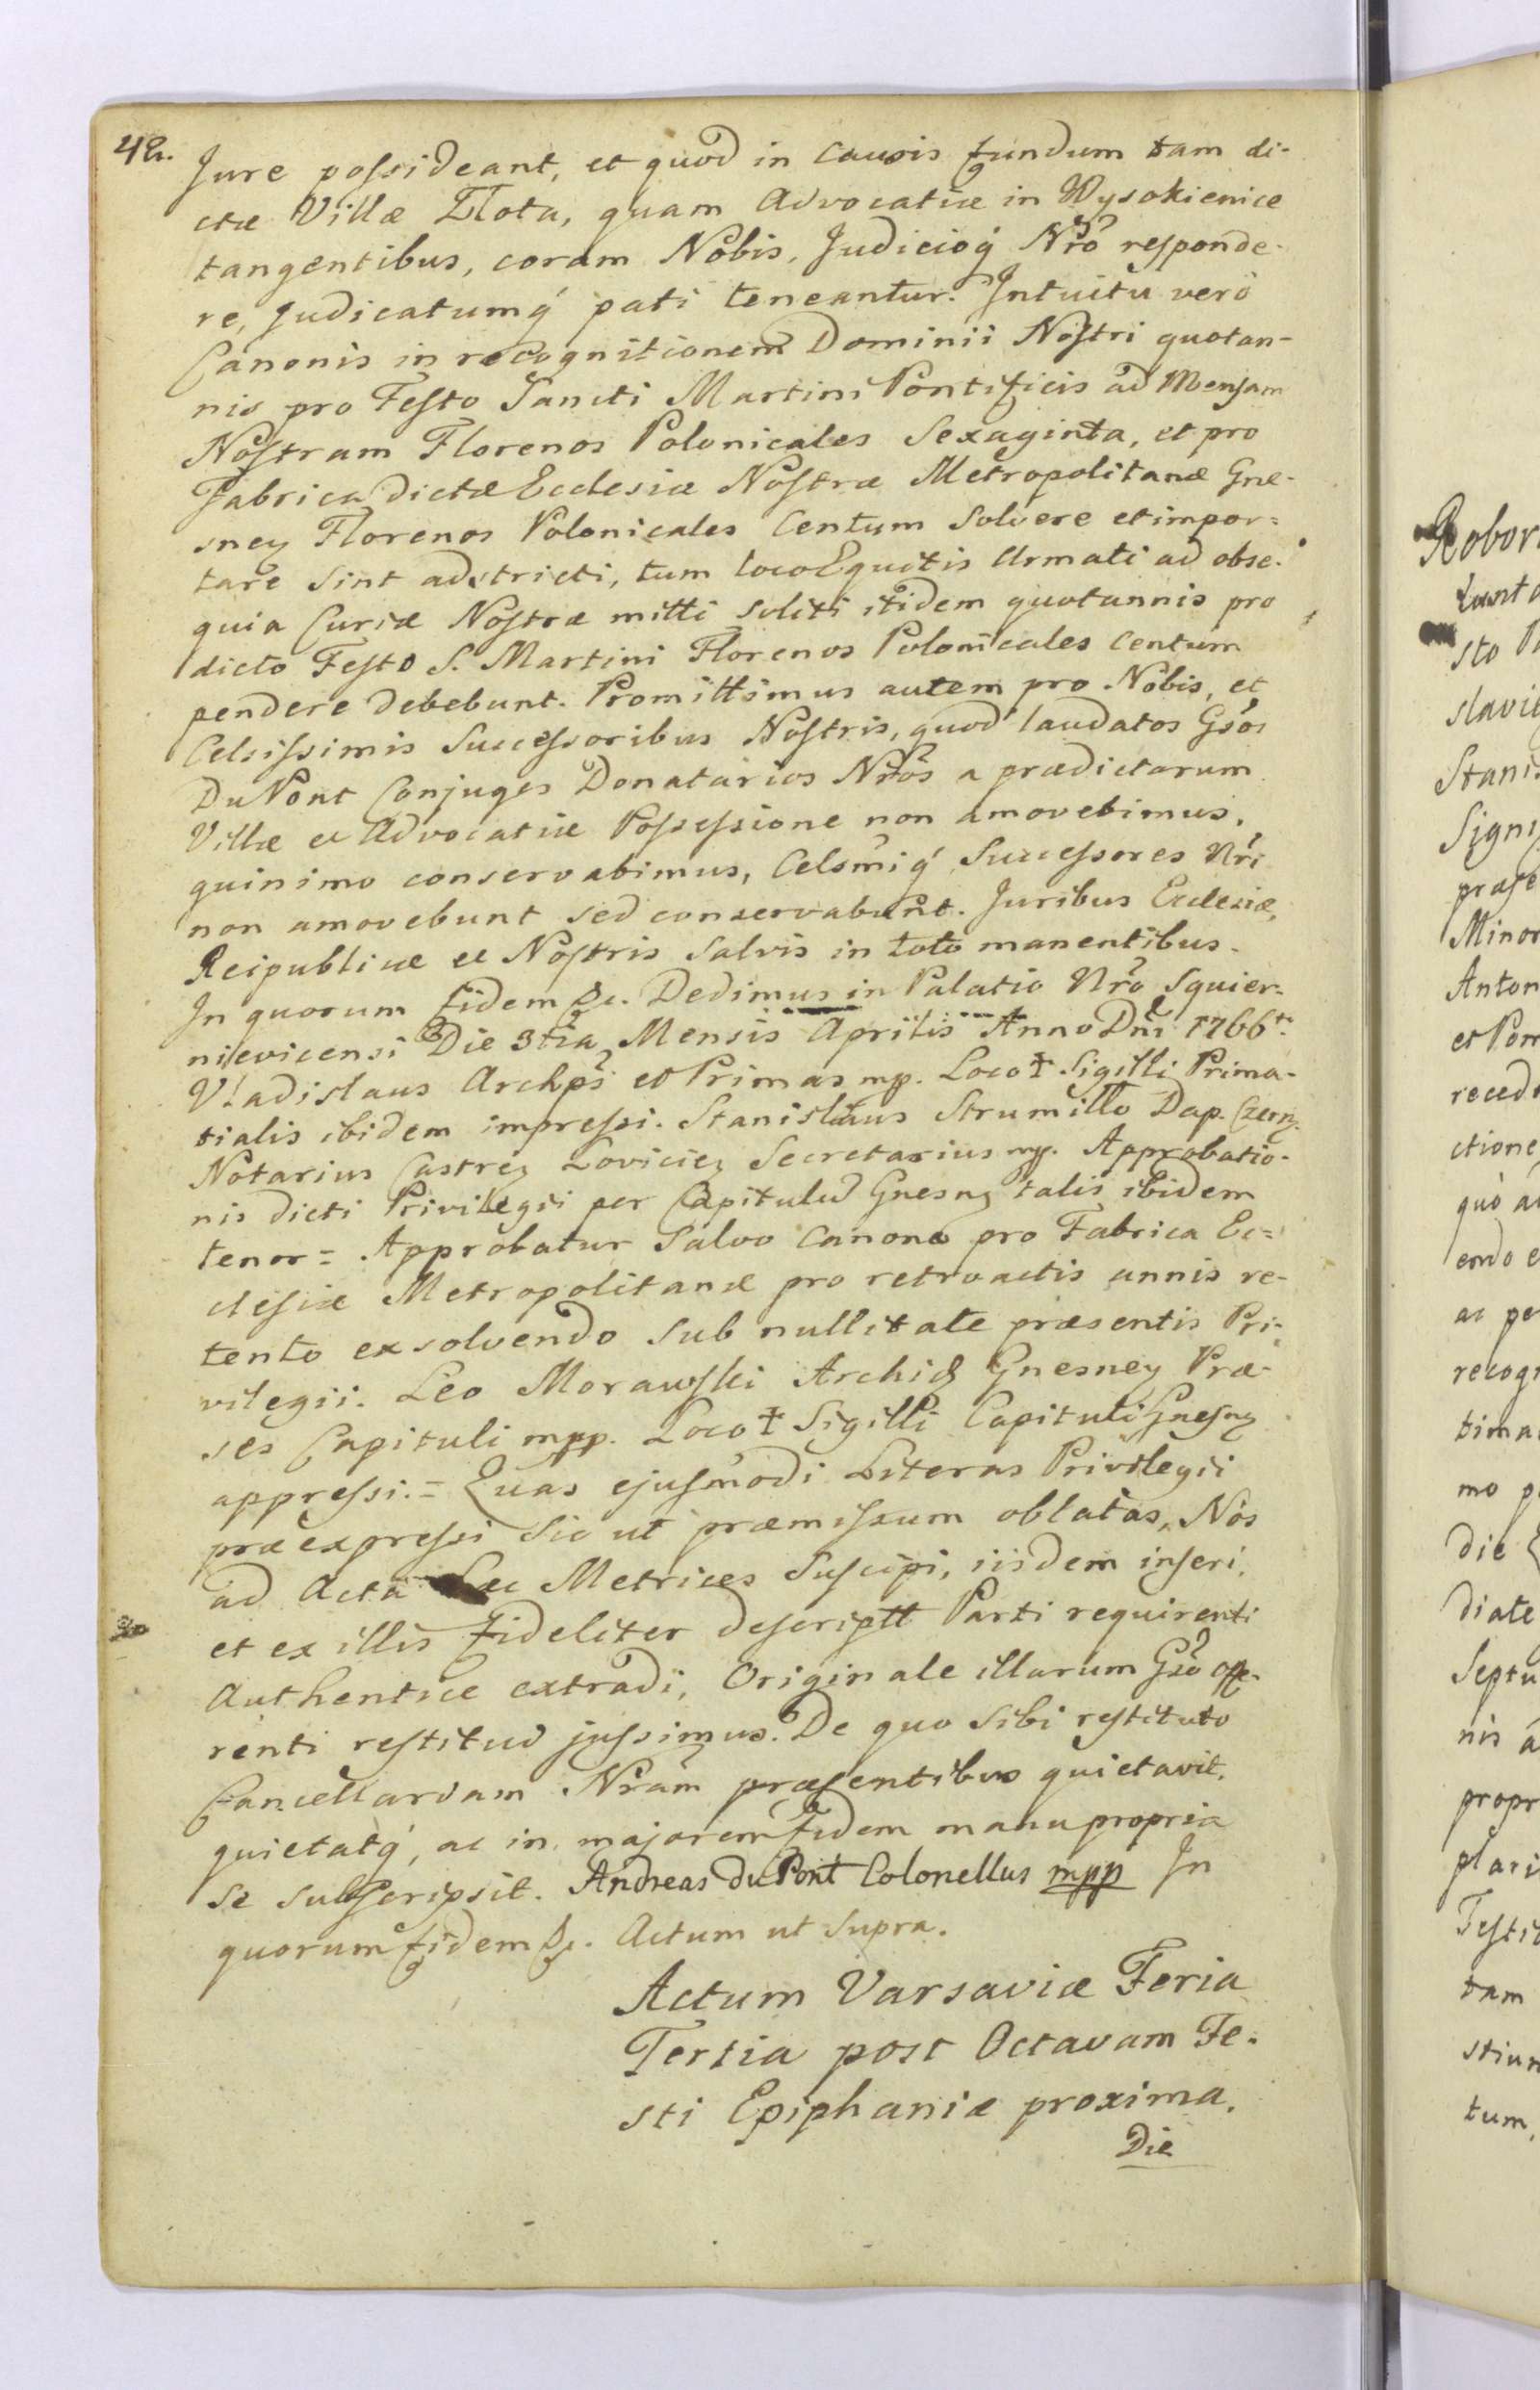 42.
Jure possideant, et quod in Causis fundum tam di-
ctæ Villæ Złota, quam Advocatiæ in Wysokienice
tangentibus, coram Nobis, Judicioq́ Nrô responde-
re, Judicatumq́ pati teneantur. Intuitu verò
Canonis in recognitionem Dominii Nostri quotan-
nis pro Festo Sancti Martini Pontificis ad Mensam
Nostram Florenos Polonicales Sexaginta, et pro
Fabrica dictæ Ecclesiæ Nostræ Metropolitanæ Gne-
sneȝ Florenos Polonicales Centum Solvere et impor=
tare Sint adstricti, tum loco Equitis Armati ad obse-
quia Curiæ Nostræ mitti soliti itidem quotannis pro
dicto Festo S. Martini Florenos Polonicales Centum
pendere debebunt. Promittimus autem pro Nobis, et
Celsissimis Successoribus Nostris, quod laudatos Gsôs
DuPont Conjuges Donatarios Nrôs a prædictarum
Villæ et Advocatiæ Possessione non amovebimus,
quinimo conservabimus, Celsmiq́ Successores Nri
non amovebunt sed conservabunt. Juribus Ecclesiæ,
Reipublicæ et Nostris Salvis in toto manentibus.
In quorum fidem &c. Dedimus in Palatio Nrô Squier-
nievicensi Die 3tia Mensis Aprilis Anno Dni 1766to
Vladislaus Archpś et Primas mp. Loco ✝ Sigilli Prima-
tialis ibidem impressi. Stanislaus Strumiłło Dap. Czerȝ.
Notarius Castreȝ Lovicieȝ Secretarius mp. Approbatio-
nis dicti Privilegii per Capitulũ Gnesnȝ talis ibidem
tenor = Approbatur Salvo Canone pro Fabrica Ec=
clesiæ Metropolitanæ pro retroactis annis re-
tento exsolvendo Sub nullitate præsentis Pri-
vilegii. Leo Morawski Archid Gnesneȝ Præ-
ses Capituli mpp. Loco ✝ Sigilli Capituli Gnesnȝ
appressi. = Quas ejusmodi Literas Privilegii
præexpressi Sic ut præmissum oblatas, Nos
ad Acta hæc Metrices Suscipi, iisdem inseri,
et ex illis fideliter descriptt Parti requirenti
Authentice extradi, Originale illarum Gsô offe-
renti restitui jussimus. De quo Sibi restituto
Cancellariam Nrâm præsentibus quietavit,
quietatq́, ac in majorem fidem manu propria
Se subscripsit. Andreas du Pont Colonellus mpp In
quorum fidem &c. Actum ut Supra.
Actum Varsaviæ Feria
Tertia post Octavam Fe-
sti Epiphaniæ proxima.
Die
Robor
sto
slavi
Stani
Sign
præse
Minor
Anton
et Pom
reced
ctione
quò a
endo e
ac pe
recog
tima
mo p
die
diate
Septu
nis a
propr
plari
Testi
tam
stiu
tum,